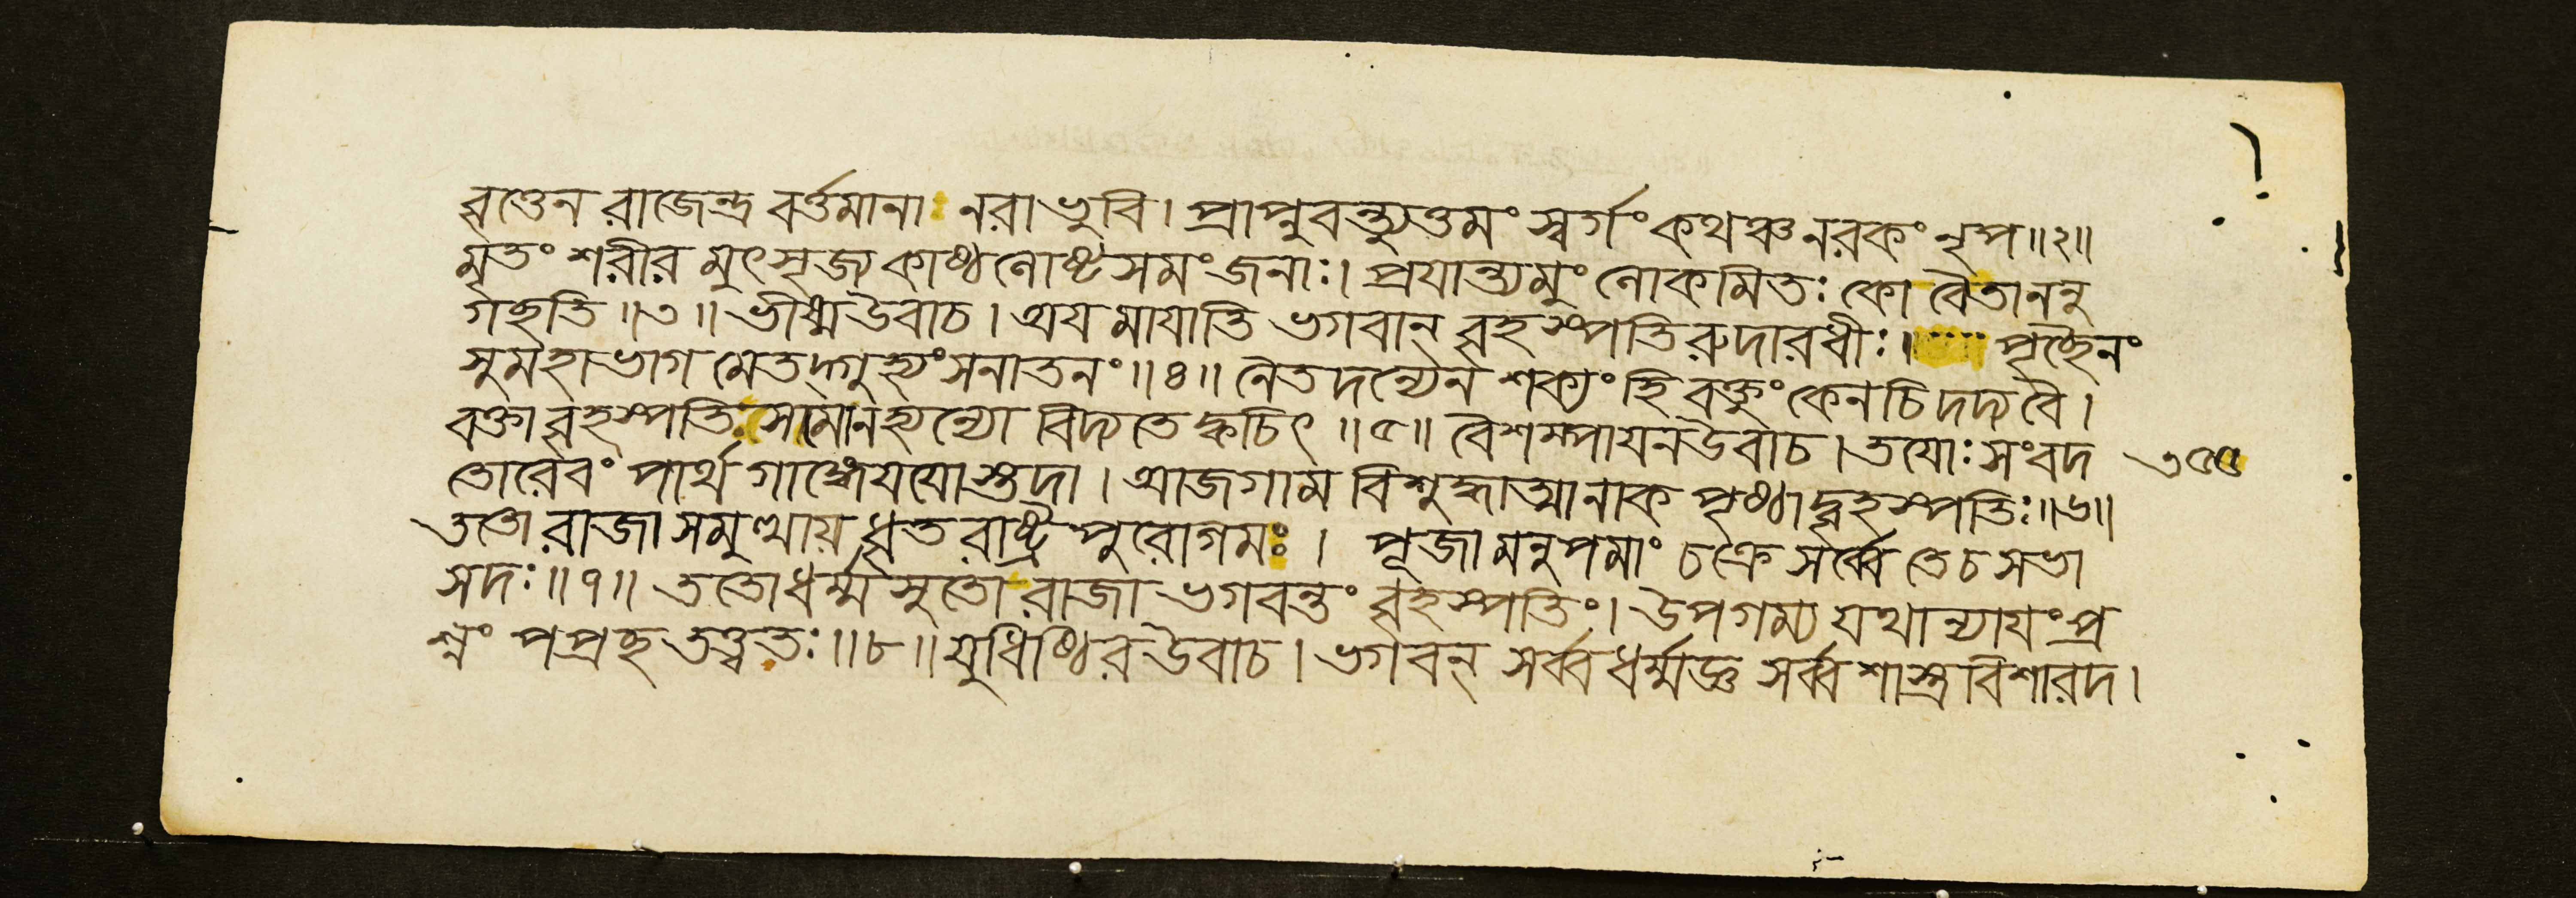 বৃত্তেন রাজেন্দ্র বর্ত্তমানা নরা ভুবি। প্রাপ্নুবন্ত্যুত্তমং স্বর্গং কথঞ্চ নরকং নৃপ॥২॥
মৃতং শরীর মুৎসৃজ্য কাষ্ঠলোষ্টসমং জনাঃ। প্রযান্ত্যমুং লোকমিতঃ কো বৈতাননু
গচ্ছতি॥৩॥ ভীষ্মউবাচ। অয মাযাতি ভগবান্ বৃহস্পতিরুদারধীঃ। পৃচ্ছৈনং
সুমহাভাগ মেতদ্গুহ্যং সনাতনং॥৪॥ নৈতদন্যেন শক্যং হি বক্তুং কেনচিদদ্য বৈ।
বক্তা বৃহস্পতিসমোনহ্যন্যো বিদ্যতে ক্বচিৎ॥৫॥ বৈশম্পাযনউবাচ। তযোঃ সংবদ ৩৫৫
তোরেবং পার্থ গাঙ্গেযযোস্তদা। আজগাম বিশুদ্ধাত্মা নাক পৃষ্ঠাদ্বৃহস্পতিঃ॥৬॥
ততো রাজা সমুত্থায় ধৃতরাষ্ট্রপুরোগমঃ। পূজা মনুপমাং চক্রে সর্ব্বে তেচ সভা
সদঃ॥৭॥ ততোধর্ম্মসুতো রাজা ভগবন্তং বৃহস্পতিং। উপগম্য যথান্যাযং প্র
শ্নং পপ্রচ্ছ তত্ত্বতঃ॥৮॥ যুধিষ্ঠিরউবাচ। ভগবন্ সর্ব্বধর্ম্মজ্ঞ সর্ব্বশাস্ত্রবিশারদ।